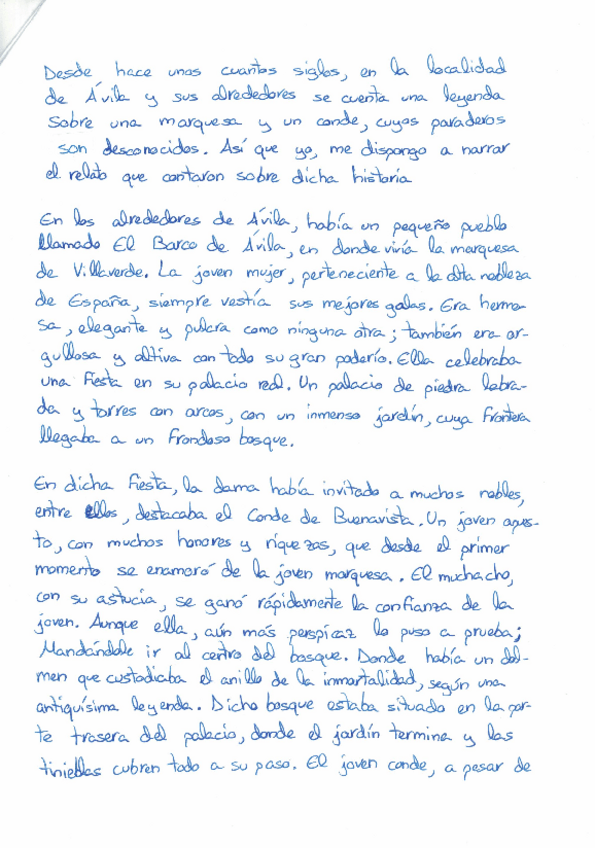 Desde hace unos cuantos siglos, en la localidad
de Ávila y sus alrededores se cuenta una leyenda
sobre una marquesa y un conde, cuyos paraderos
son desconocidos. Así que yo, me dispongo a narrar
el relato que contaron sobre dicha historia
En los alrededores de Ávila, había un pequeño pueblo
llamado El Barco de Ávila, en donde vivía la marquesa
de Villaverde. La joven mujer, perteneciente a la alta nobleza
de España, siempre vestía sus mejores galas. Era hermo-
sa, elegante y pulcra como ninguna otra; también era or-
gullosa y altiva con todo su gran poderío. Ella celebraba
una fiesta en su palacio real. Un palacio de piedra labra-
da y torres con arcos, con un inmenso jardín, cuya frontera
llegaba a un frondoso bosque.
En dicha fiesta, la dama había invitado a muchos nobles,
entre ellos, destacaba el Conde de Buenavista. Un joven apues-
to, con muchos honores y riquezas, que desde el primer
momento se enamoró de la joven marquesa. El muchacho,
con su astucia, se ganó rápidamente la confianza de la
joven. Aunque ella, aún más perspicaz lo puso a prueba;
Mandándole ir al centro del bosque. Donde había un dol-
men que custodiaba el anillo de la inmortalidad, según una
antiquísima leyenda. Dicho bosque estaba situado en la par-
te trasera del palacio, donde el jardín termina y las
tinieblas cubren todo a su paso. El joven conde, a pesar de